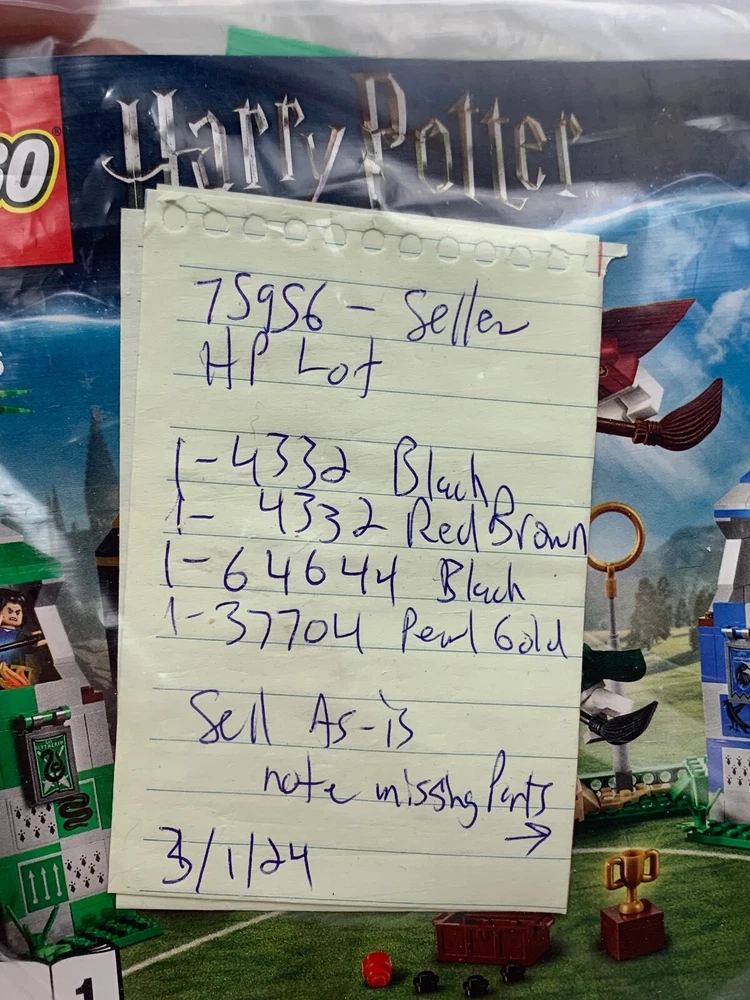 Harry Potter
TM
GO®
75956 - Seller
HP Lot
1-4332 Black
1- 4332 Red Brown
1-64644 Black
1-37704 Pearl Gold
Sell As-is
note missing Parts
→
3/1/24
SLYTHERIN
1